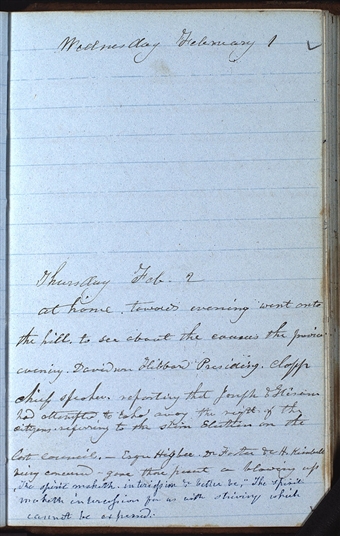 Wednesday February 1
Thursday Feb. 2
at home. towards evening went onto
the hill. to see about the caucus the previous
evening. Davidson Hibbard Presiding. Clapp
chief speaker. reporting that Joseph &
had attempted to take away the right of the
citizens referring to the on the
Esqr Higbee. Dr Foster & H. Kimball
being concerned - gave them present a blowing up
The spirit maketh intercession &c better be, - The spirit
maketh intercession for us with striving which
cannot be expressed.